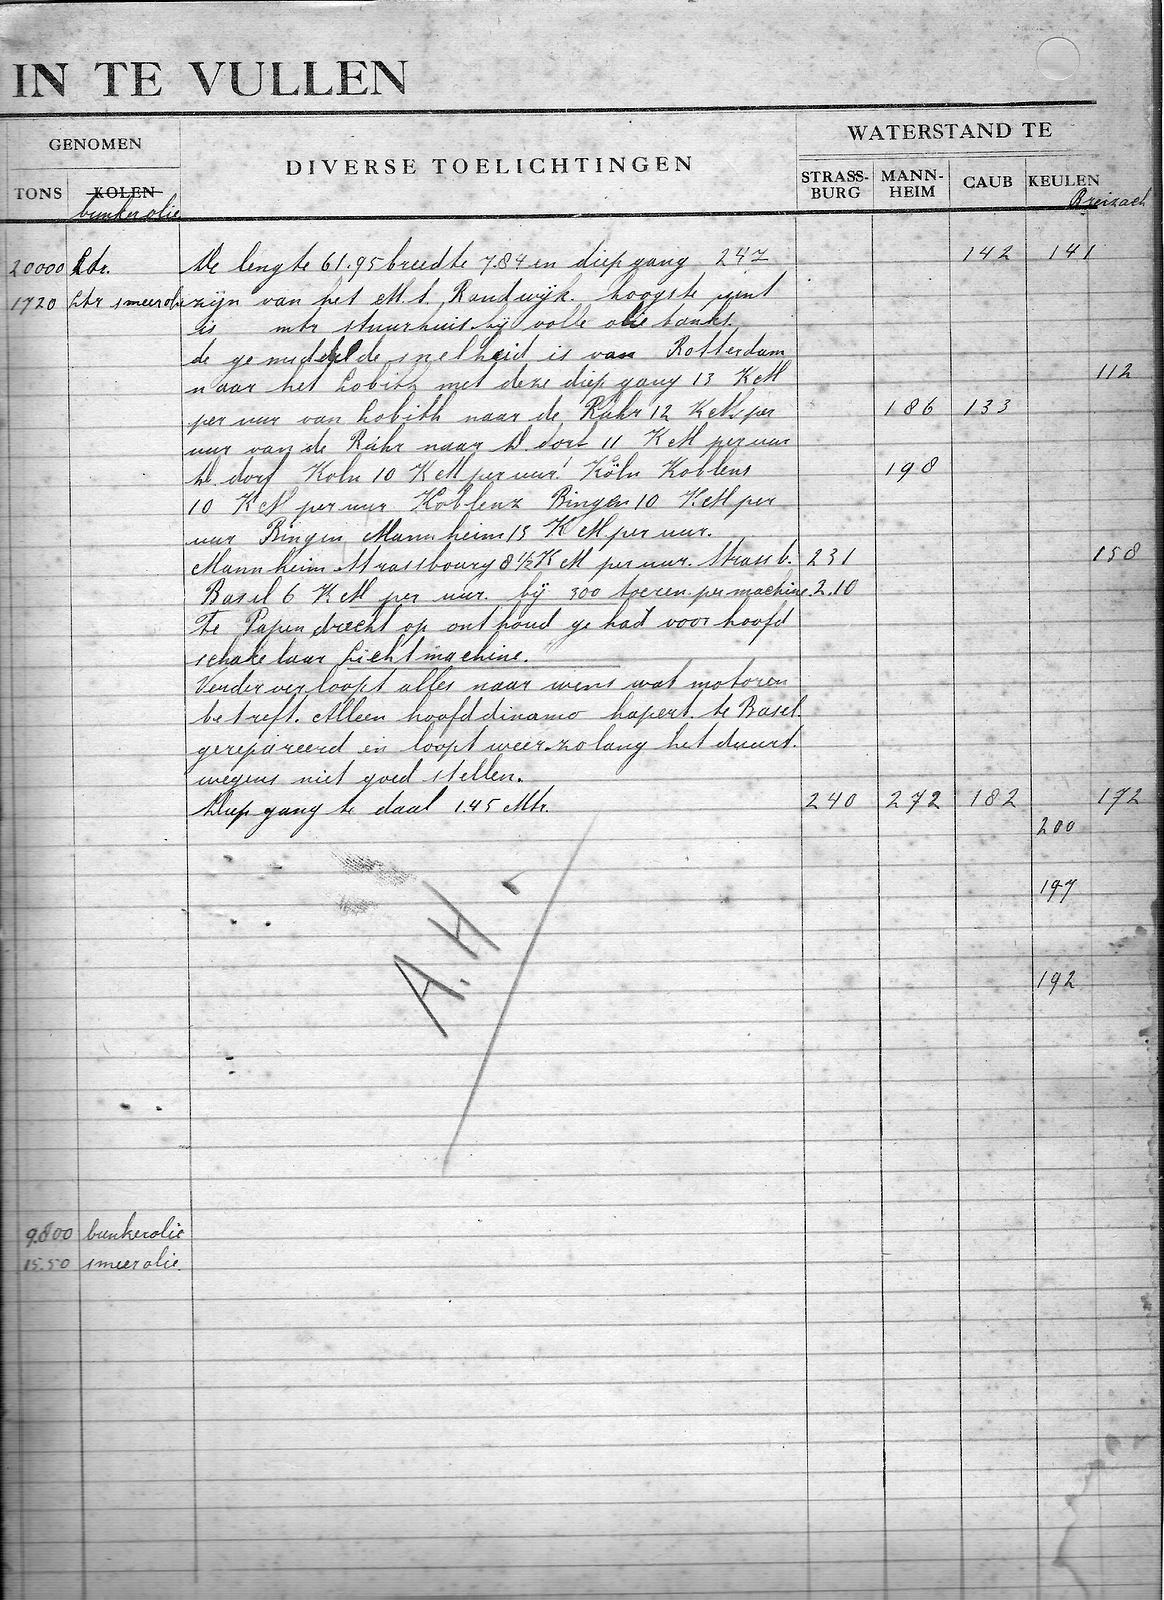 IN TE VULLEN
GENOMEN
DIVERSE TOELICHTINGEN
WATERSTAND TE
TONS KOLEN
bunkerolie
STRASS-BURG MANN-HEIM CAUB KEULEN
Breizach
20000 Ltr. De lengte 61.95 breedte 7.84 en diepgang 247 142 141
1720 Ltr smeerolie zijn van het M.S. Randwijk. hoogste punt
is mtr stuurhuis bij volle olie tanks.
de gemiddelde snelheid is van Rotterdam
naar het Lobith met deze diepgang 13 KM 112
per uur van Lobith naar de Ruhr 12 KM per 186 133
uur van de Ruhr naar D.dorf 11 KM per uur
D.dorf Koln 10 KM per uur! Köln Koblens 198
10 KM per uur Koblenz Bingen 10 KM per
uur Bingen Mannheim 13 KM per uur.
Mannheim Strassbourg 8½ KM per uur. Strassb. 231 158
Basel 6 KM per uur. bij 300 toeren per machine. 2.10
Te Papendrecht op onthoud gehad voor hoofd
schakelaar Lichtmachine.
Verder verloopt alles naar wens wat motoren
betreft. Alleen hoofddinamo hapert. te Basel
gerepareerd en loopt weer. zolang het duurt.
wegens niet goed stellen.
Diepgang te daal 1.45 Mtr. 240 272 182 172
200
197
A.H.
192
9.800 bunkerolie
15.50 smeerolie.